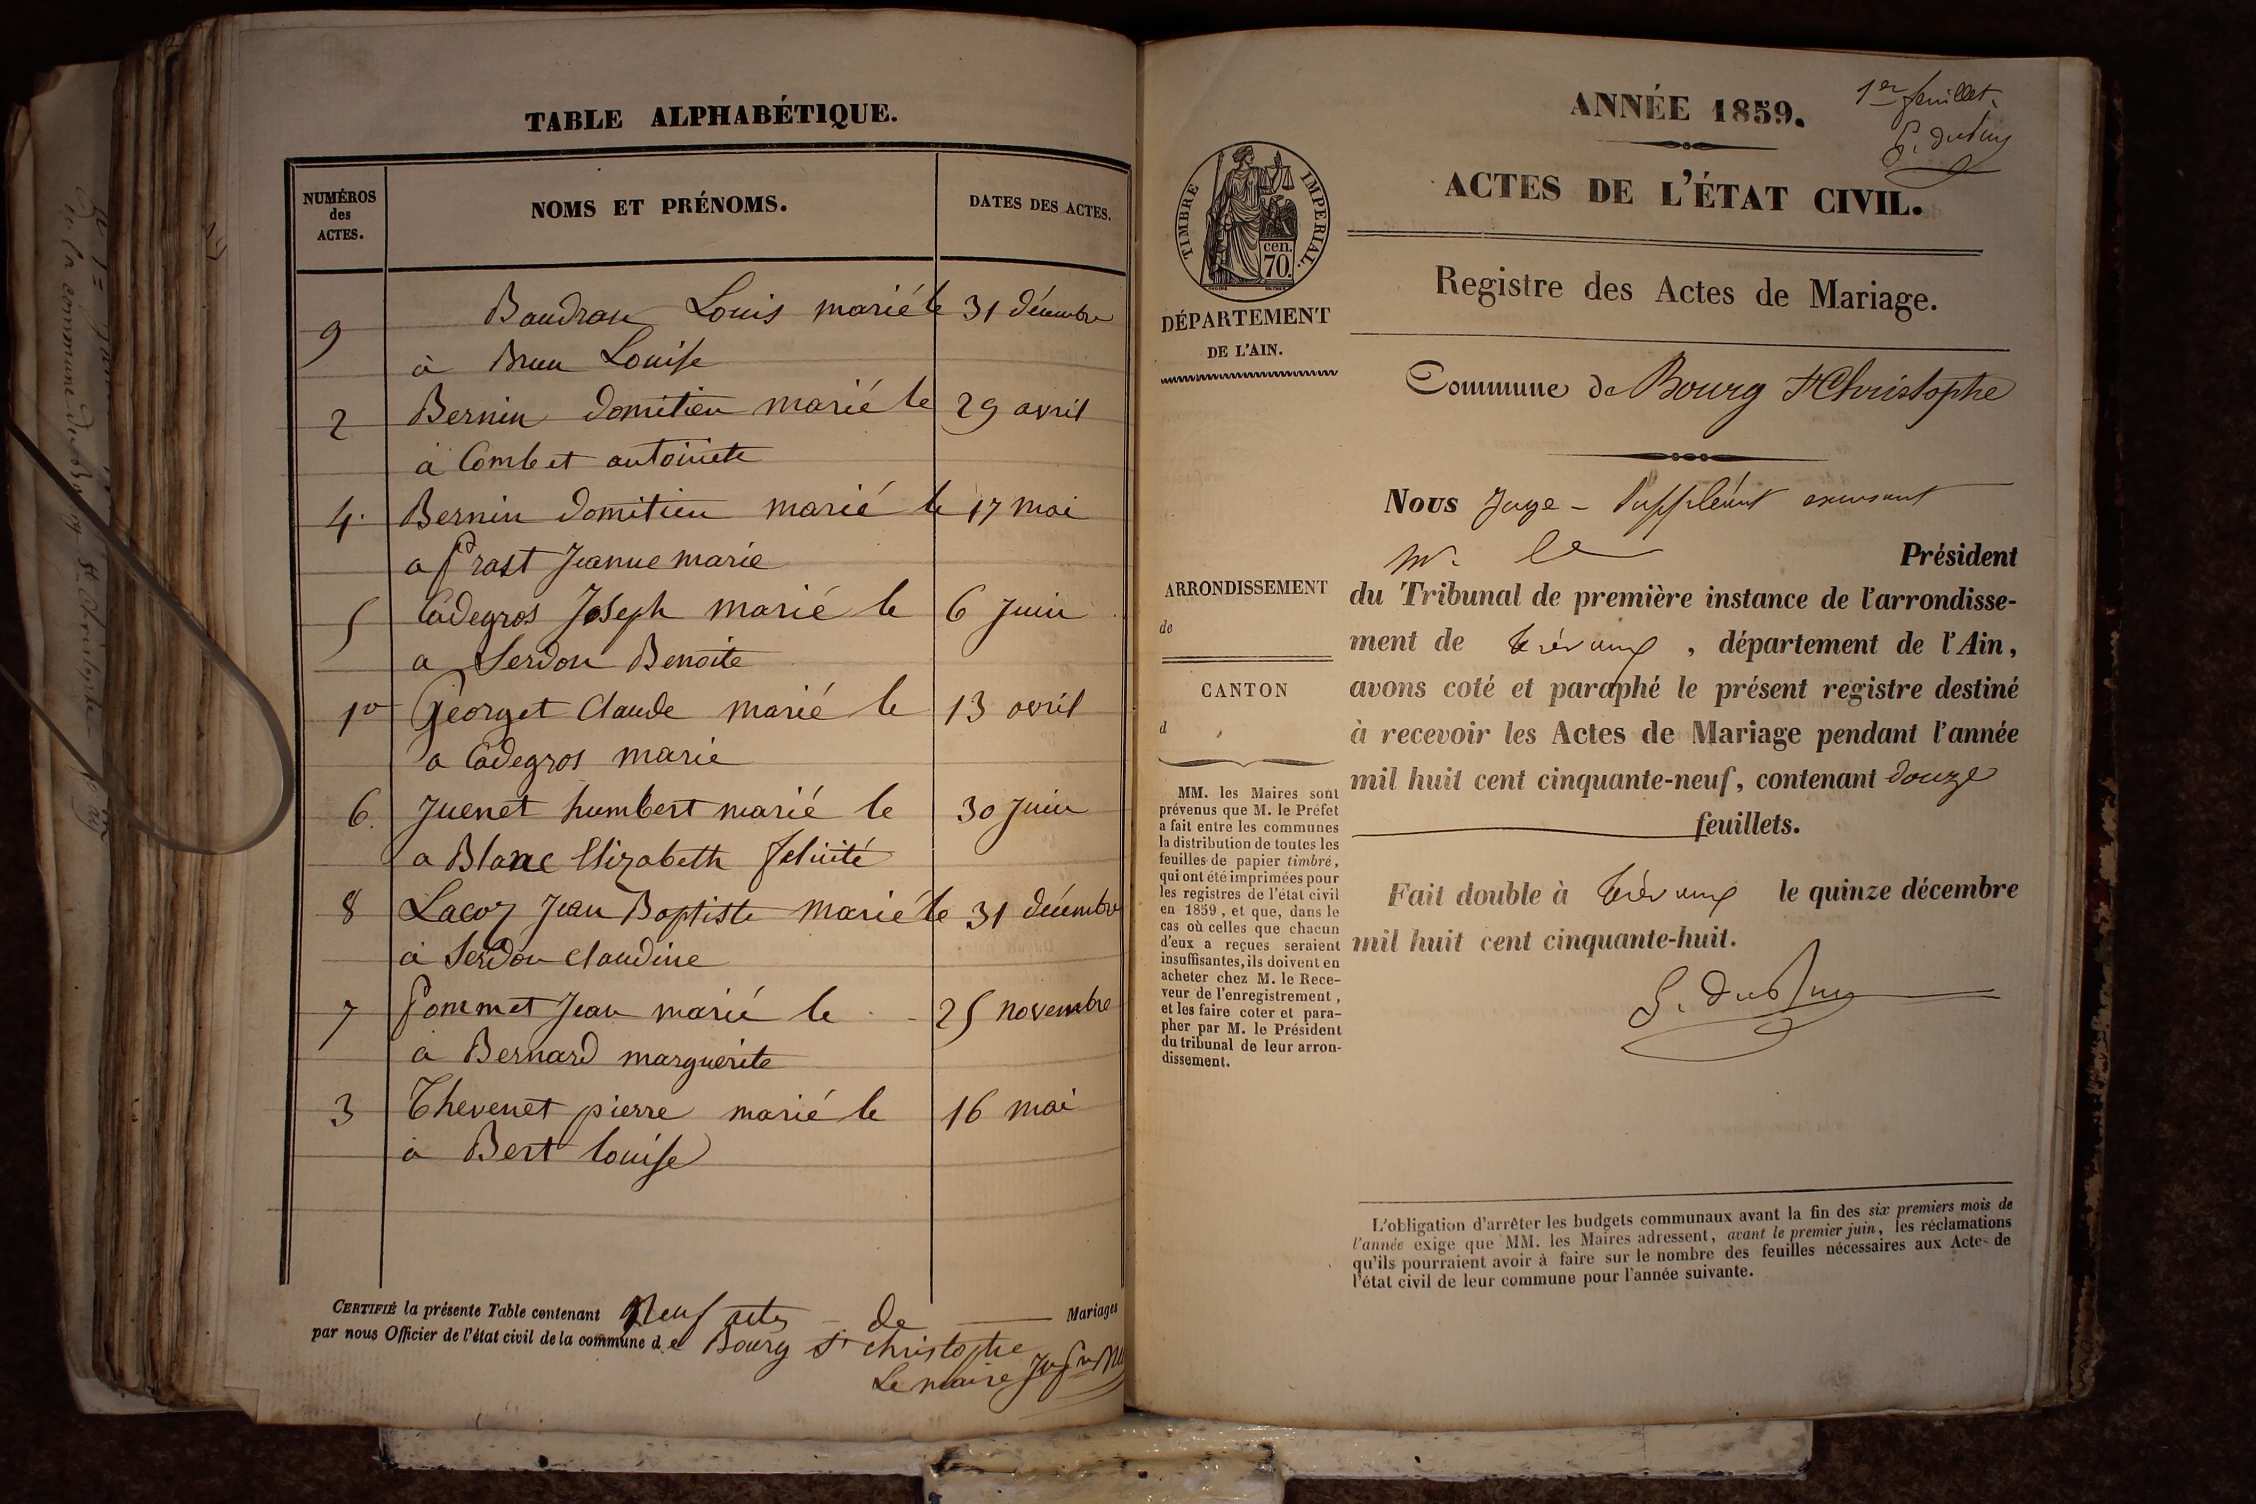 TABLE ALPHABÉTIQUE.
NUMÉROS
des
ACTES.
NOMS ET PRÉNOMS.
DATES DES ACTES.
9 Baudran Louis marié le 31 décembre
à Brun Louise
2 Bernin domitien marié le 29 avril
à Combet antoinete
4. Bernin domitien marié le 17 mai
a Prost Jeanne marie
5 Cadegros Joseph marié le 6 Juin
a Serdon Benoite
1er Georget Claude marié le 13 avril
a Cadegros marie
6. Juenet humbert marié le 30 Juin
a Blanc Elizabeth felicité
8 Lacoz Jean Baptiste marié le 31 décembre
à Serdon Claudine
7 Pommet Jean marié le 25 novembre
a Bernard marguerite
3 Thevenet pierre marié le 16 mai
à Bert louise
CERTIFIÉ la présente Table contenant Neuf actes de Mariages
par nous Officier de l'état civil de la commune de Bourg St christophe
Le maire
1er feuillet.
ANNÉE 1859.
ACTES DE L'ÉTAT CIVIL.
TIMBRE IMPERIAL.
cen.
70.
DÉPARTEMENT
DE L'AIN.
Registre des Actes de Mariage.
Commune de Bourg St Christophe
Nous Juge - Suppléant excusant
Mr. le Président
du Tribunal de première instance de l'arrondisse-
ment de trévoux, département de l'Ain,
avons coté et paraphé le présent registre destiné
à recevoir les Actes de Mariage pendant l'année
mil huit cent cinquante-neuf, contenant douze
feuillets.
Fait double à trévoux le quinze décembre
mil huit cent cinquante-huit.
ARRONDISSEMENT
de
CANTON
d
MM. les Maires sont
prévenus que M. le Préfet
a fait entre les communes
la distribution de toutes les
feuilles de papier timbré,
qui ont été imprimées pour
les registres de l'état civil
en 1859, et que, dans le
cas où celles que chacun
d'eux a reçues seraient
insuffisantes, ils doivent en
acheter chez M. le Rece-
veur de l'enregistrement,
et les faire coter et para-
pher par M. le Président
du tribunal de leur arron-
dissement.
L'obligation d'arrêter les budgets communaux avant la fin des six premiers mois de
l'année exige que MM. les Maires adressent, avant le premier juin, les réclamations
qu'ils pourraient avoir à faire sur le nombre des feuilles nécessaires aux Actes de
l'état civil de leur commune pour l'année suivante.